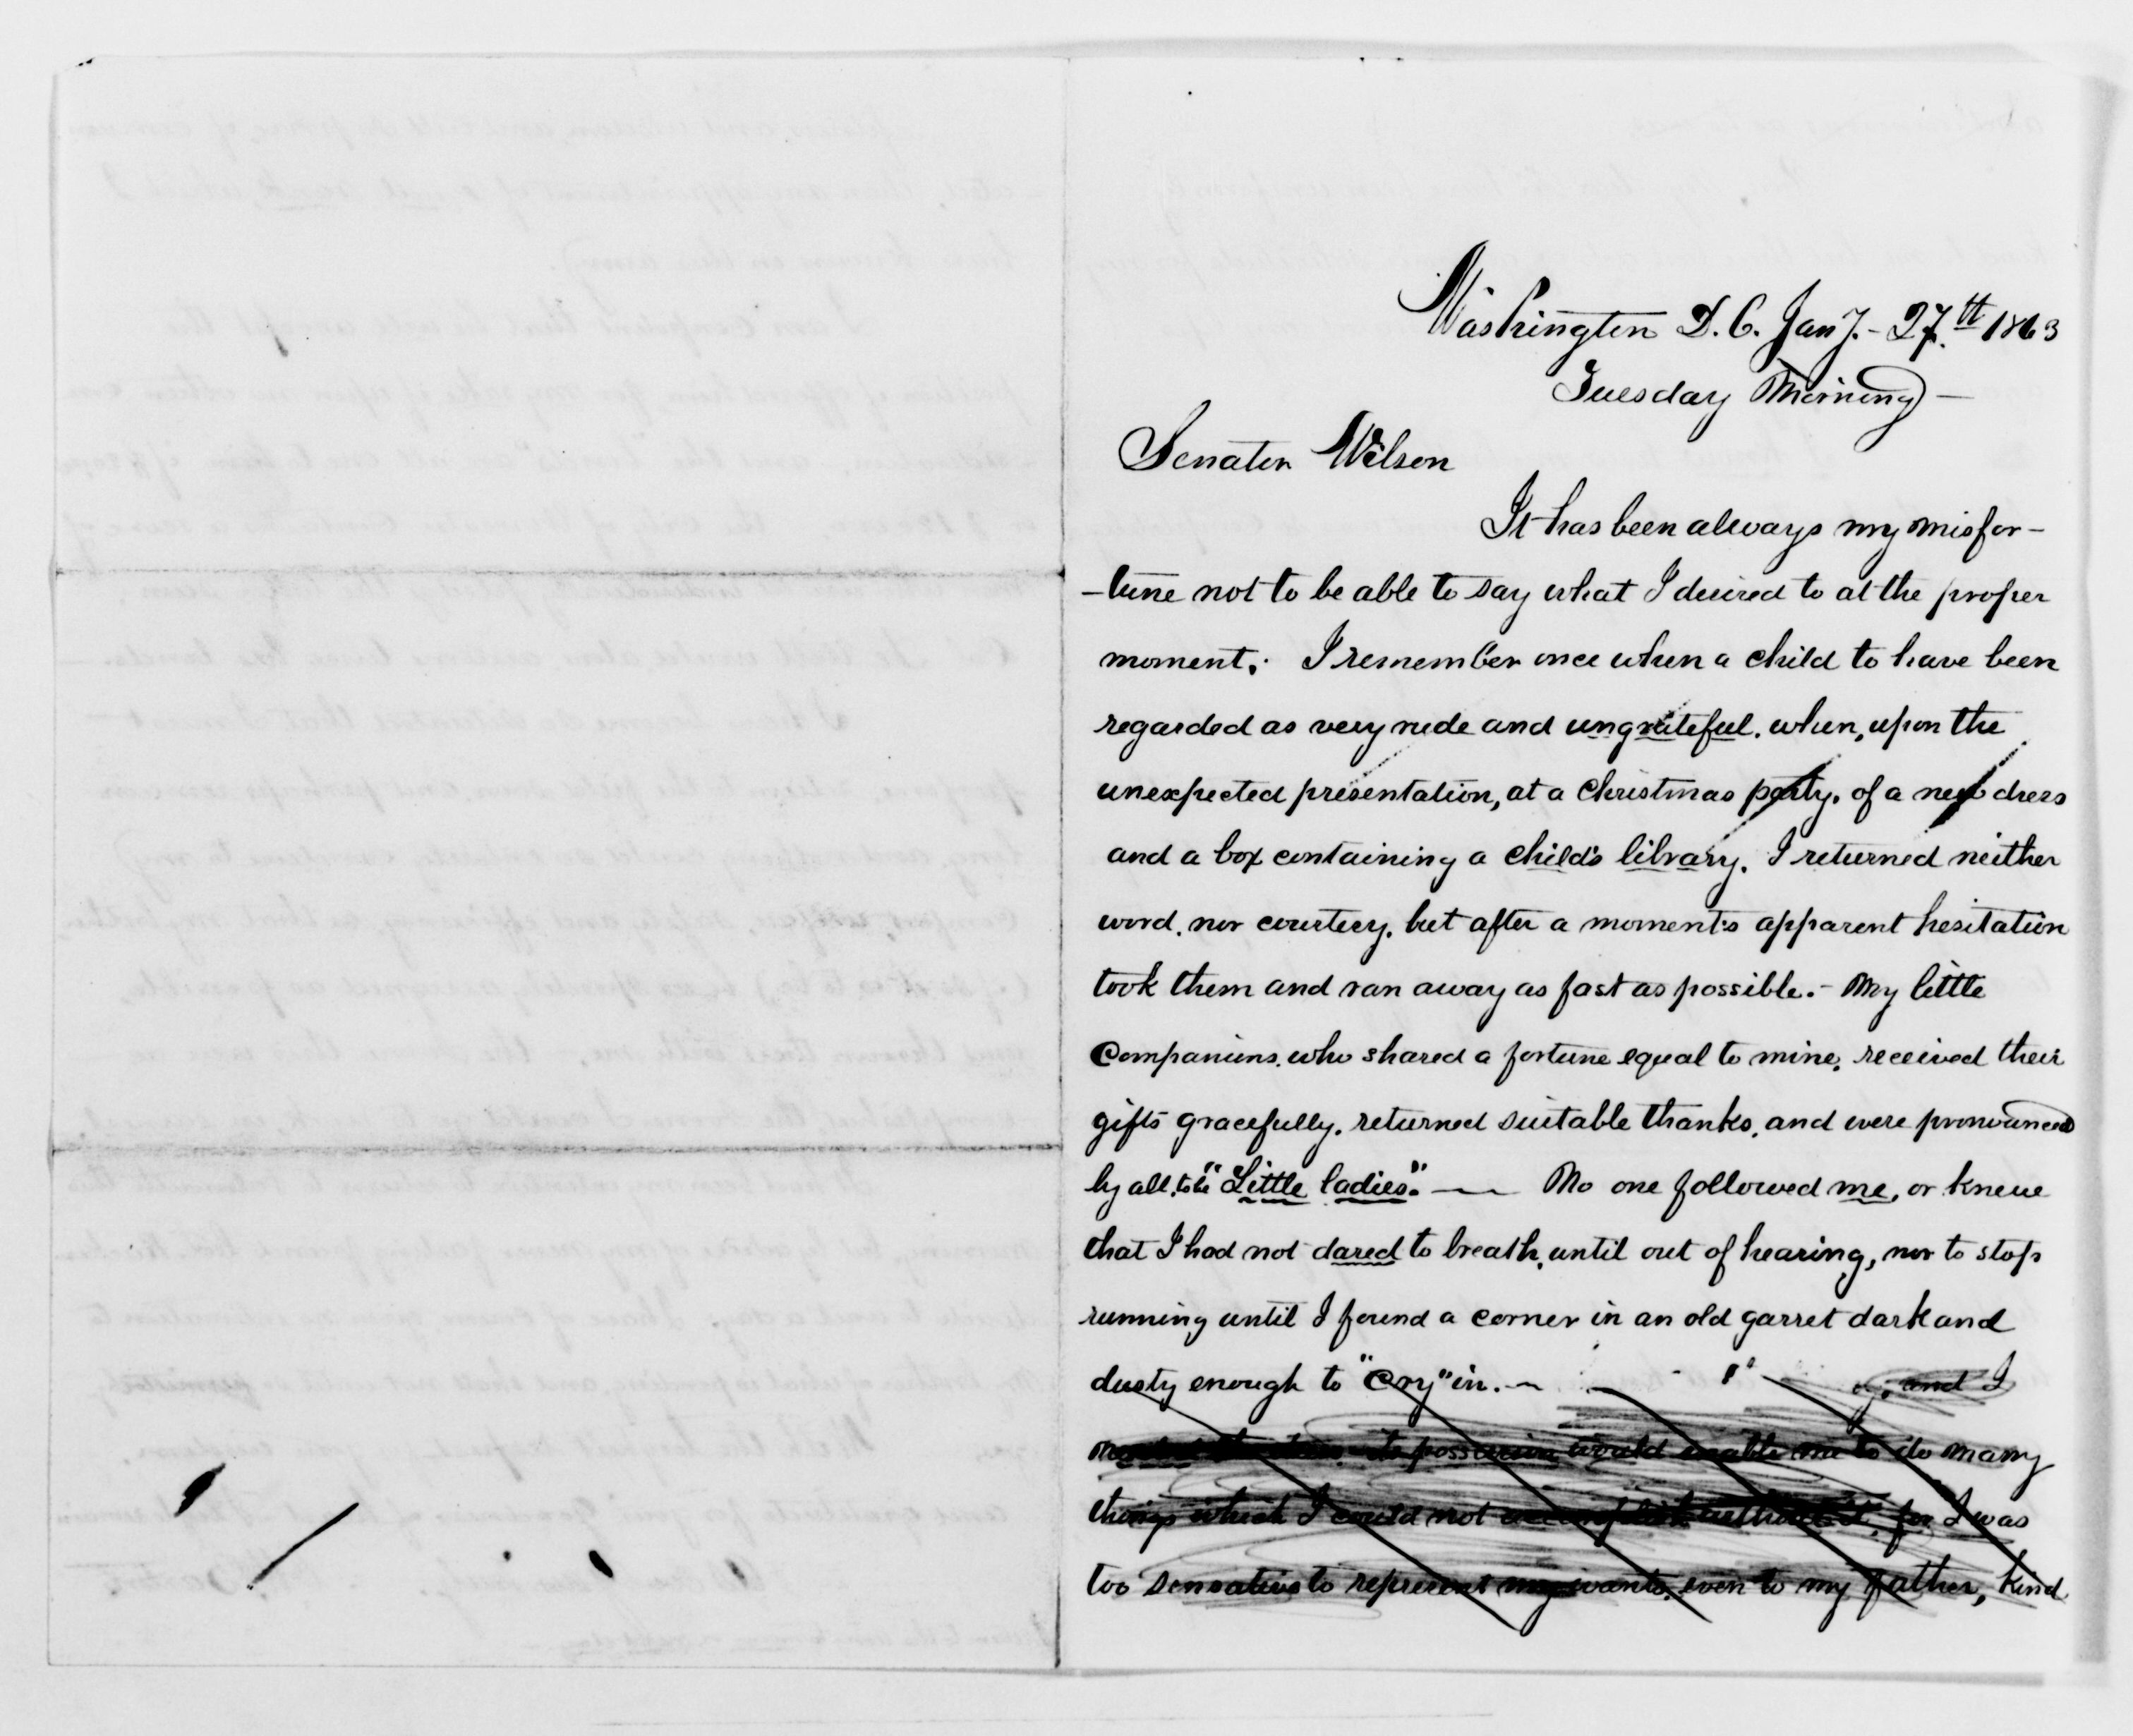 Washington D.C. Jany.- 27.th 1863
Tuesday Morning -
Senator Wilson
It has been always my misfor-
-tune not to be able to say what I desired to at the proper
moment; I remember once when a child to have been
regarded as very rude and ungrateful. when, upon the
unexpected presentation, at a Christmas party, of a new dress
and a box containing a child's library. I returned neither
word, nor courtecy, but after a moment's apparent hesitation
took them and ran away as fast as possible.- My little
Companions, who shared a fortune equal to mine, received their
gifts gracefully, returned suitable thanks, and were pronounced
by all, to be "Little ladies". — No one followed me, or knew
that I had not dared to breath, until out of hearing, nor to stop
running until I found a corner in an old garret dark and
dusty enough to "Cry" in. — and I
its possession would enable me to do many
things which I could not accomplish without it, for I was
too sensative to represent my wants, even to my father, kind